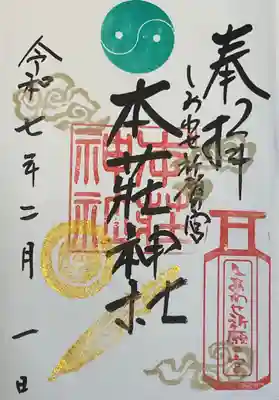 奉拝
しあわせ祈願宮
本荘神社
令和七年二月一日
しあわせ祈願